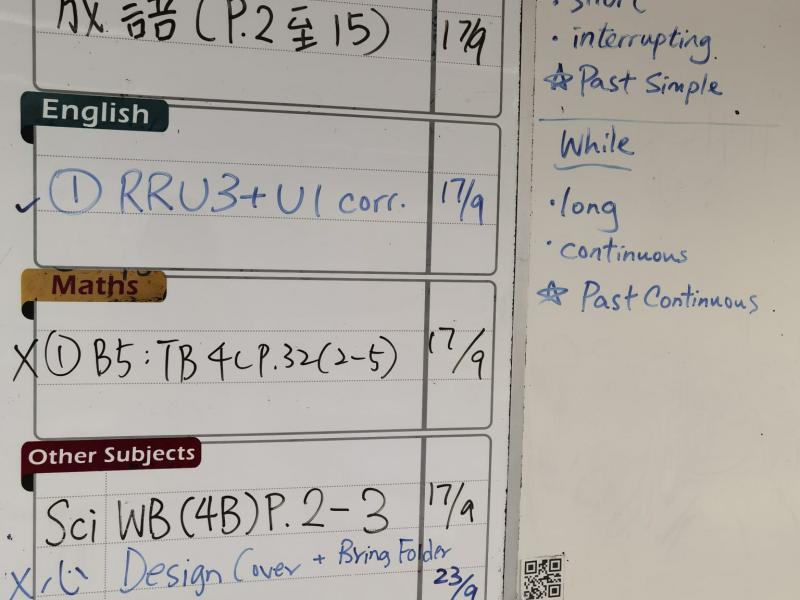 成語(P.2至15) 17/9
English
✓ ① RRU3+U1 corr. 17/9
Maths
X ① B5:TB 4C P.32(2-5) 17/9
Other Subjects
Sci WB(4B)P.2-3 17/9
X 心 Design Cover + Bring Folder 23/9
· short
· interrupting
☆ Past Simple
While
· long
· continuous
☆ Past Continuous